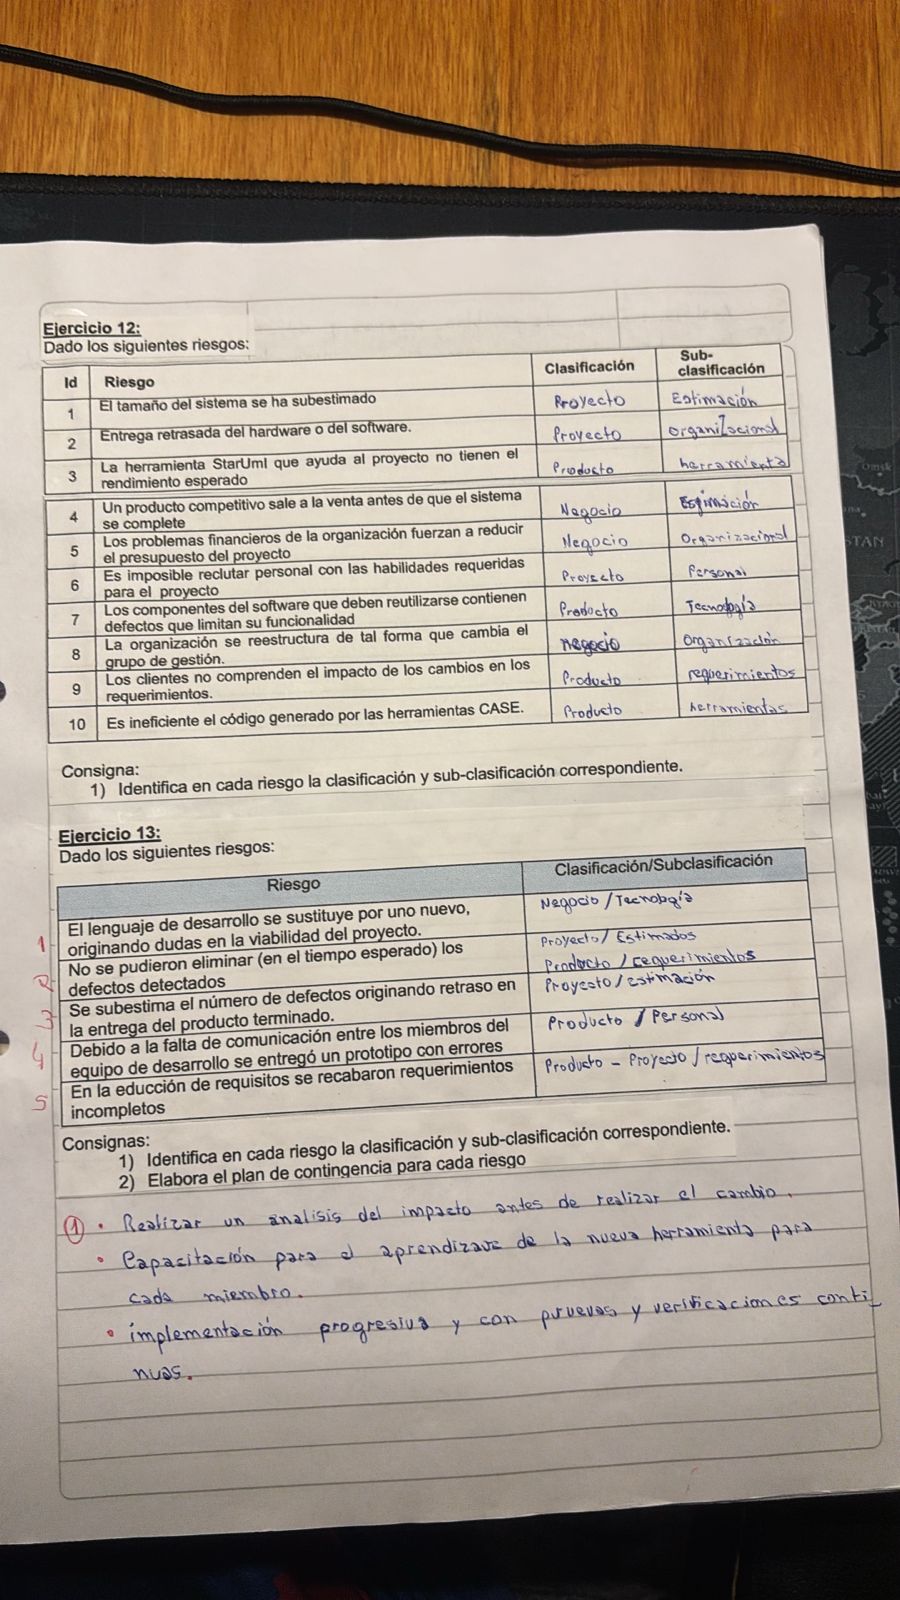 Ejercicio 12:
Dado los siguientes riesgos:
Id Riesgo Clasificación Sub-
clasificación
1 El tamaño del sistema se ha subestimado Proyecto Estimación
2 Entrega retrasada del hardware o del software. Proyecto organizacional
3 La herramienta StarUml que ayuda al proyecto no tienen el
rendimiento esperado Producto herramienta
4 Un producto competitivo sale a la venta antes de que el sistema
se complete Negocio Estimación
5 Los problemas financieros de la organización fuerzan a reducir
el presupuesto del proyecto Negocio Organizacional
6 Es imposible reclutar personal con las habilidades requeridas
para el proyecto Proyecto Personal
7 Los componentes del software que deben reutilizarse contienen
defectos que limitan su funcionalidad Producto Tecnología
8 La organización se reestructura de tal forma que cambia el
grupo de gestión. negocio Organización
9 Los clientes no comprenden el impacto de los cambios en los
requerimientos. Producto requerimientos
10 Es ineficiente el código generado por las herramientas CASE. Producto herramientas
Consigna:
1) Identifica en cada riesgo la clasificación y sub-clasificación correspondiente.
Ejercicio 13:
Dado los siguientes riesgos:
Riesgo Clasificación/Subclasificación
1 El lenguaje de desarrollo se sustituye por uno nuevo, Negocio / Tecnología
originando dudas en la viabilidad del proyecto.
2 No se pudieron eliminar (en el tiempo esperado) los Proyecto / Estimados
defectos detectados Producto / requerimientos
3 Se subestima el número de defectos originando retraso en Proyecto / estimación
la entrega del producto terminado.
4 Debido a la falta de comunicación entre los miembros del Producto / Personal
equipo de desarrollo se entregó un prototipo con errores
5 En la educción de requisitos se recabaron requerimientos Producto - Proyecto / requerimientos
incompletos
Consignas:
1) Identifica en cada riesgo la clasificación y sub-clasificación correspondiente.
2) Elabora el plan de contingencia para cada riesgo
1 • Realizar un analisis del impacto antes de realizar el cambio.
• Capacitación para el aprendizaje de la nueva herramienta para
cada miembro.
• implementación progresiva y con pruevas y verificaciones conti_
nuas.